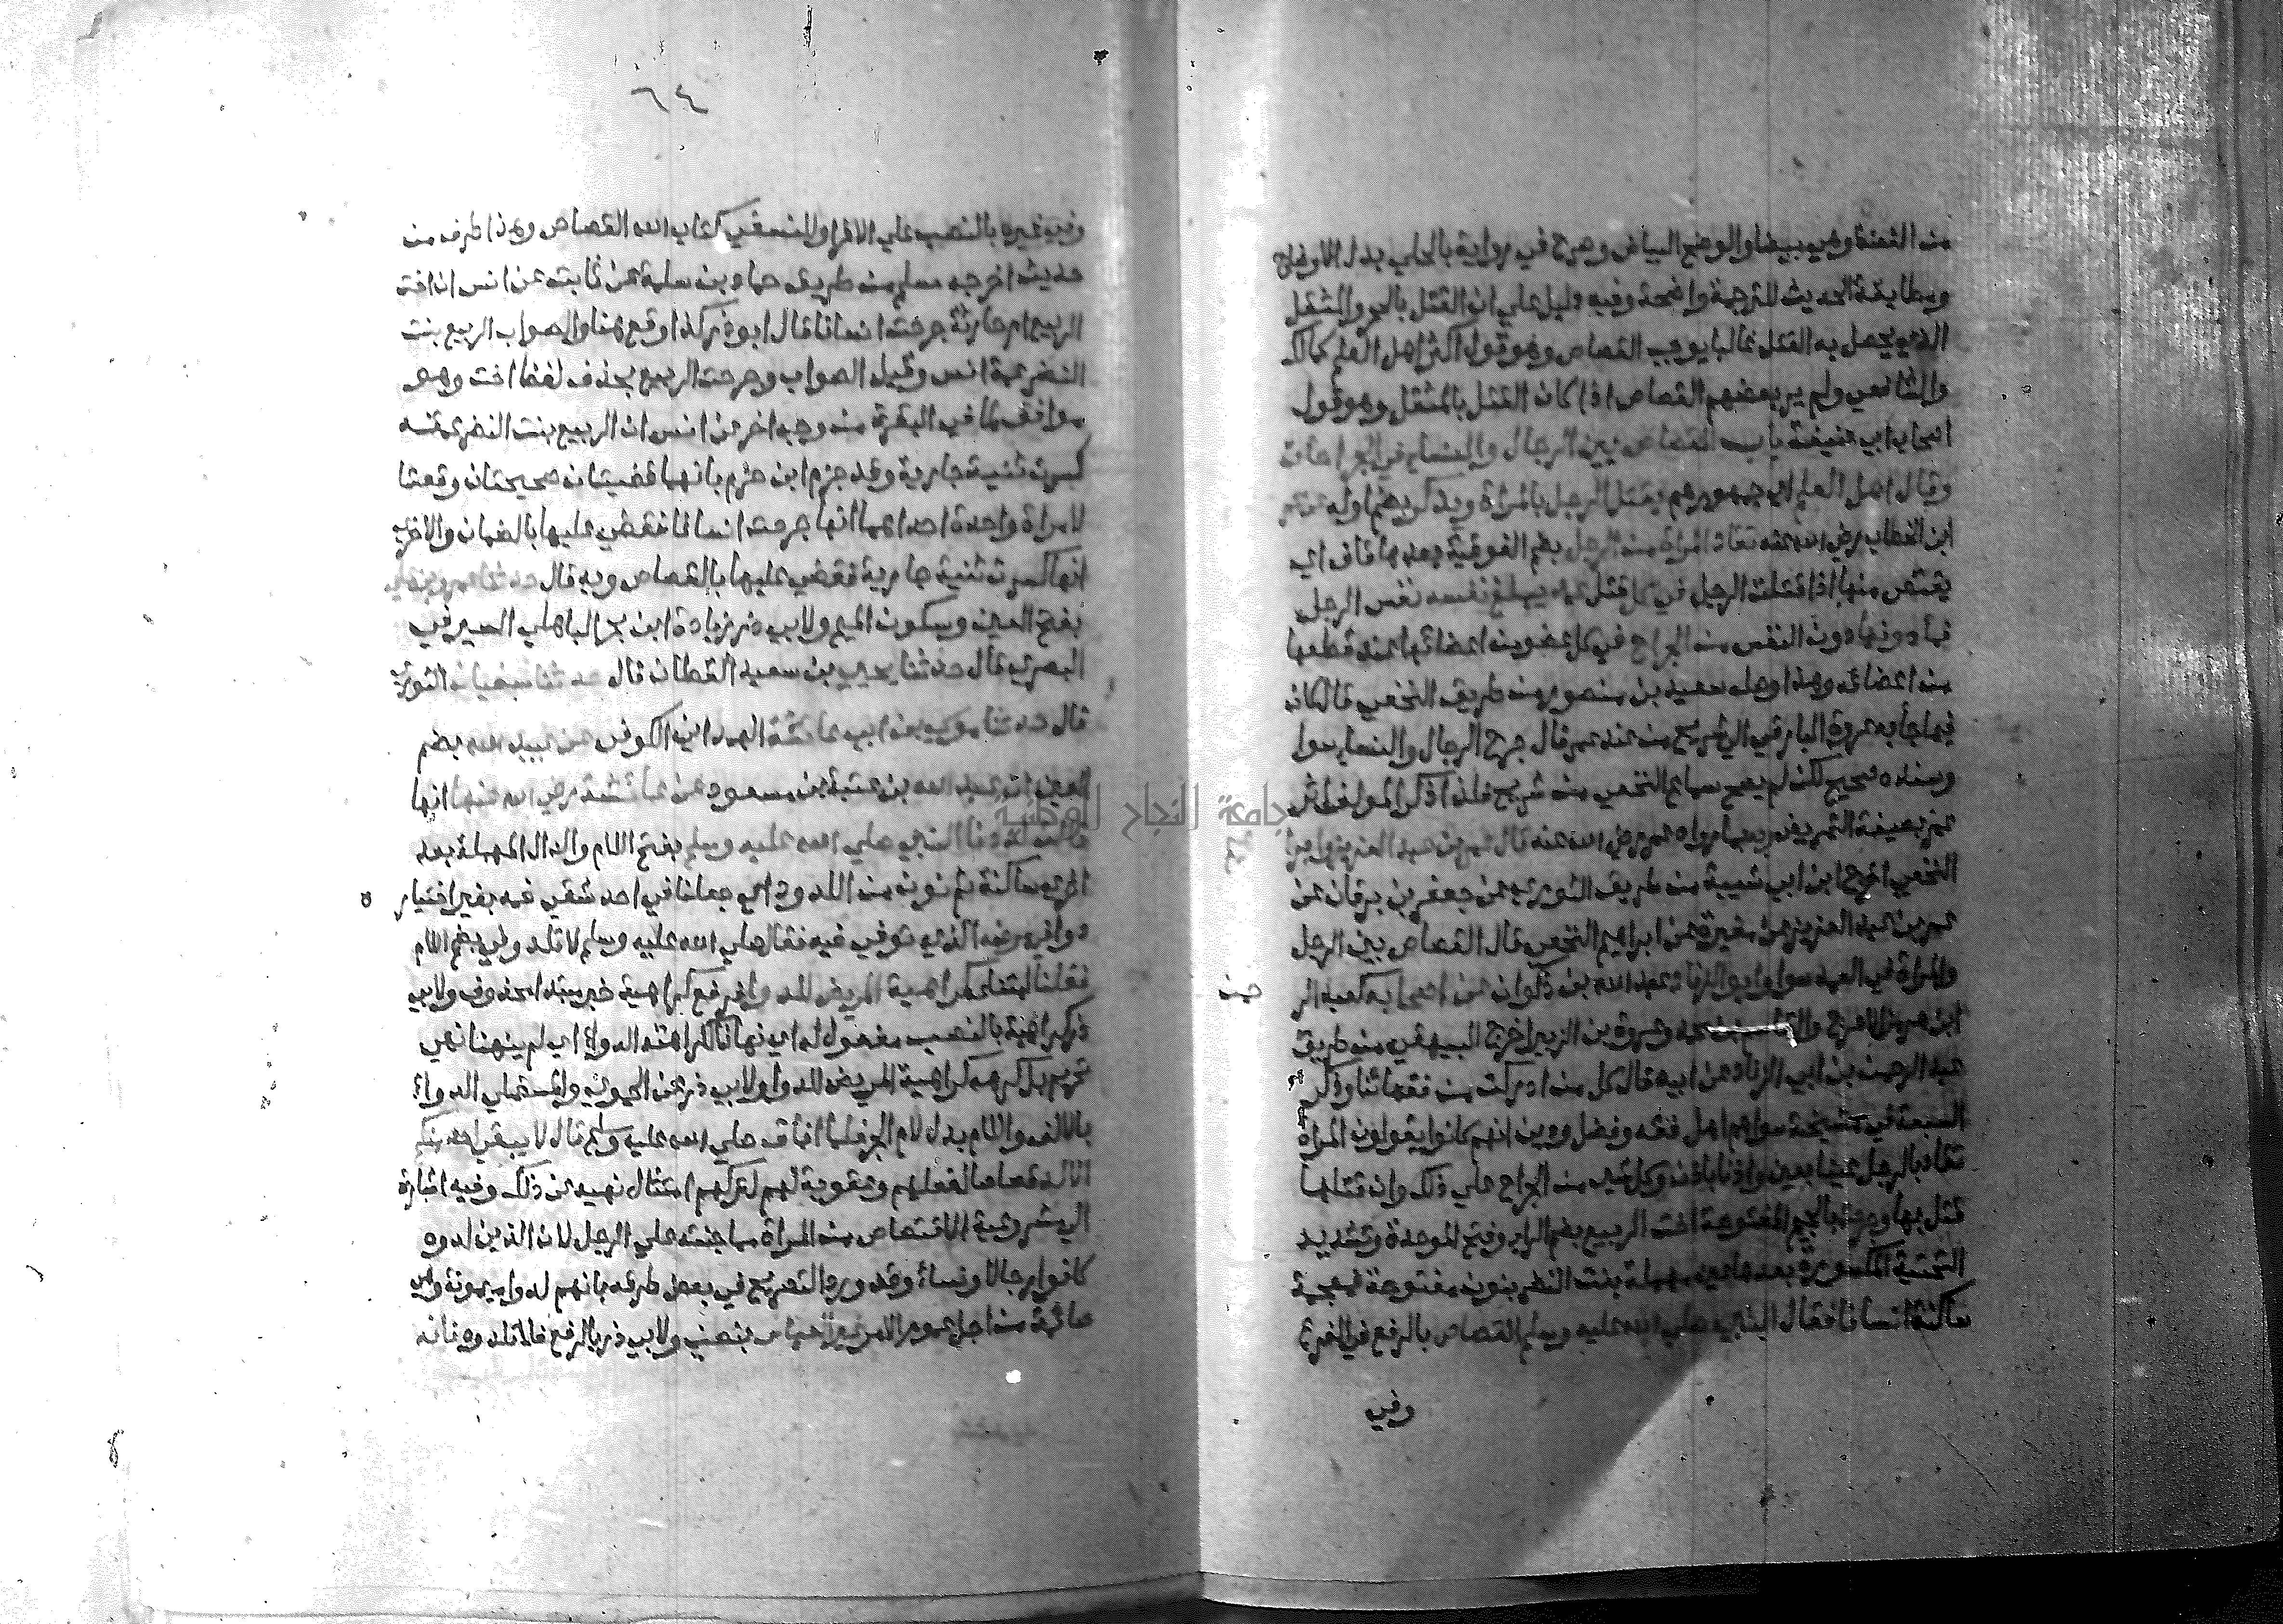 من الفضة وهي بيضا والوضح البياض وصرح في رواية بالحلي بدل الاوضاح
ومطابقة الحديث للترجمة واضحة وفيه دليل علي ان القتل بالحجر والمثقل
الذي يحصل به القتل غالبا يوجب القصاص وهو قول اكثر اهل العلم كمالك
والشافعي ولم ير بعضهم القصاص اذا كان القتل بالمثقل وهو قول
اصحاب ابي حنيفة باب القصاص بين الرجال والنساء في الجراحات
وقال اهل العلم اي جمهورهم يقتل الرجل بالمراة ويذكر بضم اوله عن عمر
ابن الخطاب رضي الله عنه تقاد المراة من الرجل بضم الفوقية بعدها قاف اي
يقتص منها اذا قتلت الرجل في كل قتل عمد يبلغ نفسه نفس الرجل
فما دونها دون النفس من الجراح في كل عضو من اعضائها عند قطعها
من اعضائه وهذا وصله سعيد بن منصور من طريق النخعي قال كان
فيما جا به عروة البارقي الي شريح من عند عمر قال جرح الرجال والنساء سوا
وسنده صحيح لكن لم يصح سماع النخعي من شريح فلذا ذكر المولف اثر
عمر بصيغة التمريض وبما رواه عمر رضي الله عنه قال عمر بن عبد العزيز وابراهيم
النخعي اخرج ابن ابي شيبة من طريق الثوري عن جعفر بن برقان عن
عمر بن عبد العزيز وعن مغيرة عن ابراهيم النخعي قال القصاص بين الرجل
والمراة في العمد سوا وابو الزناد عبد الله بن ذكوان عن اصحابه كعبد الر
حمن
ابن هرمز الاعرج والقاسم بن محمد وعروة بن الزبير اخرج البيهقي من طريق
عبد الرحمن بن ابي الزناد عن ابيه قال كل من ادركت من فقهائنا وذكر
السبعة في مشيخة سواهم اهل فقه وفضل ودين انهم كانوا يقولون المراة
تقاد بالرجل عينا بعين واذنا باذن وكل شي من الجراح علي ذلك وان قتلها
قتل بها وجرحت بالجيم المفتوحة اخت الربيع بضم الراء وفتح الموحدة وتشديد
التحتية المكسورة بعدها عين مهملة بنت النضر بنون مفتوحة فمعجمة
ساكنة انسانا فقال النبي صلي الله عليه وسلم القصاص بالرفع في الفرع
وفي
٦٤
وفي غيره بالنصب علي الاغرا وللنسفي كتاب الله القصاص وهذا طرف من
حديث اخرجه مسلم من طريق حماد بن سلمة عن ثابت عن انس ان اخت
الربيع ام حارثة جرحت انسانا قال ابو ذر كذا وقع هنا والصواب الربيع بنت
النضر عمة انس وقيل الصواب وجرحت الربيع بحذف لفظ اخت وهو
موافق لما في البقرة من وجه اخر عن انس ان الربيع بنت النضر عمته
كسرت ثنية جارية وقد جزم ابن حزم بانهما قضيتان صحيحتان وقعتا
لامراة واحدة احداهما انها جرحت انسانا فقضي عليها بالضمان والاخري
انها كسرت ثنية جارية فقضي عليها بالقصاص وبه قال حدثنا عمرو بن علي
بفتح العين وسكون الميم ولابي ذر زيادة ابن بحر الباهلي الصيرفي
البصري قال حدثنا يحيي بن سعيد القطان قال حدثنا سفيان الثوري
قال حدثنا موسي بن ابي عائشة الهمداني الكوفي عن عبيد الله بضم
العين ابن عبد الله بن عتبة بن مسعود عن عائشة رضي الله عنها انها
قالت لددنا النبي صلي الله عليه وسلم بفتح اللام والدال المهملة بعد
اخري ساكنة ثم نون من اللدود اي جعلنا في احد شقي فمه بغير اختياره
دوا في مرضه الذي توفي فيه فقال صلي الله عليه وسلم لا تلدوني بضم اللام
فقلنا امتناع كراهية المريض للدوا في رفع كراهية خبر مبتدا محذوف ولابي
ذر كراهية بالنصب مفعول له اي نهانا لكراهته الدوا اي لم ينهنا نهي
تحريم بل كرهه كراهية المريض للدوا ولابي ذر عن الحموي والمستملي الدوا
بالالف واللام بدل لام الجر فلما افاق صلي الله عليه وسلم قال لا يبقي احد منكم
الا لد قصاصا لفعلهم وعقوبة لهم لتركهم امتثال نهيه عن ذلك وفيه اشارة
الي مشروعية الاقتصاص من المراة بما جنته علي الرجل لان الذين لدوه
كانوا رجالا ونساء وقد ورد التصريح في بعض طرقه بانهم لدوا ميمونة وهي
صائمة من اجل عموم الامر غير العباس بنصب ولابي ذر بالرفع فلا تلدوه فانه